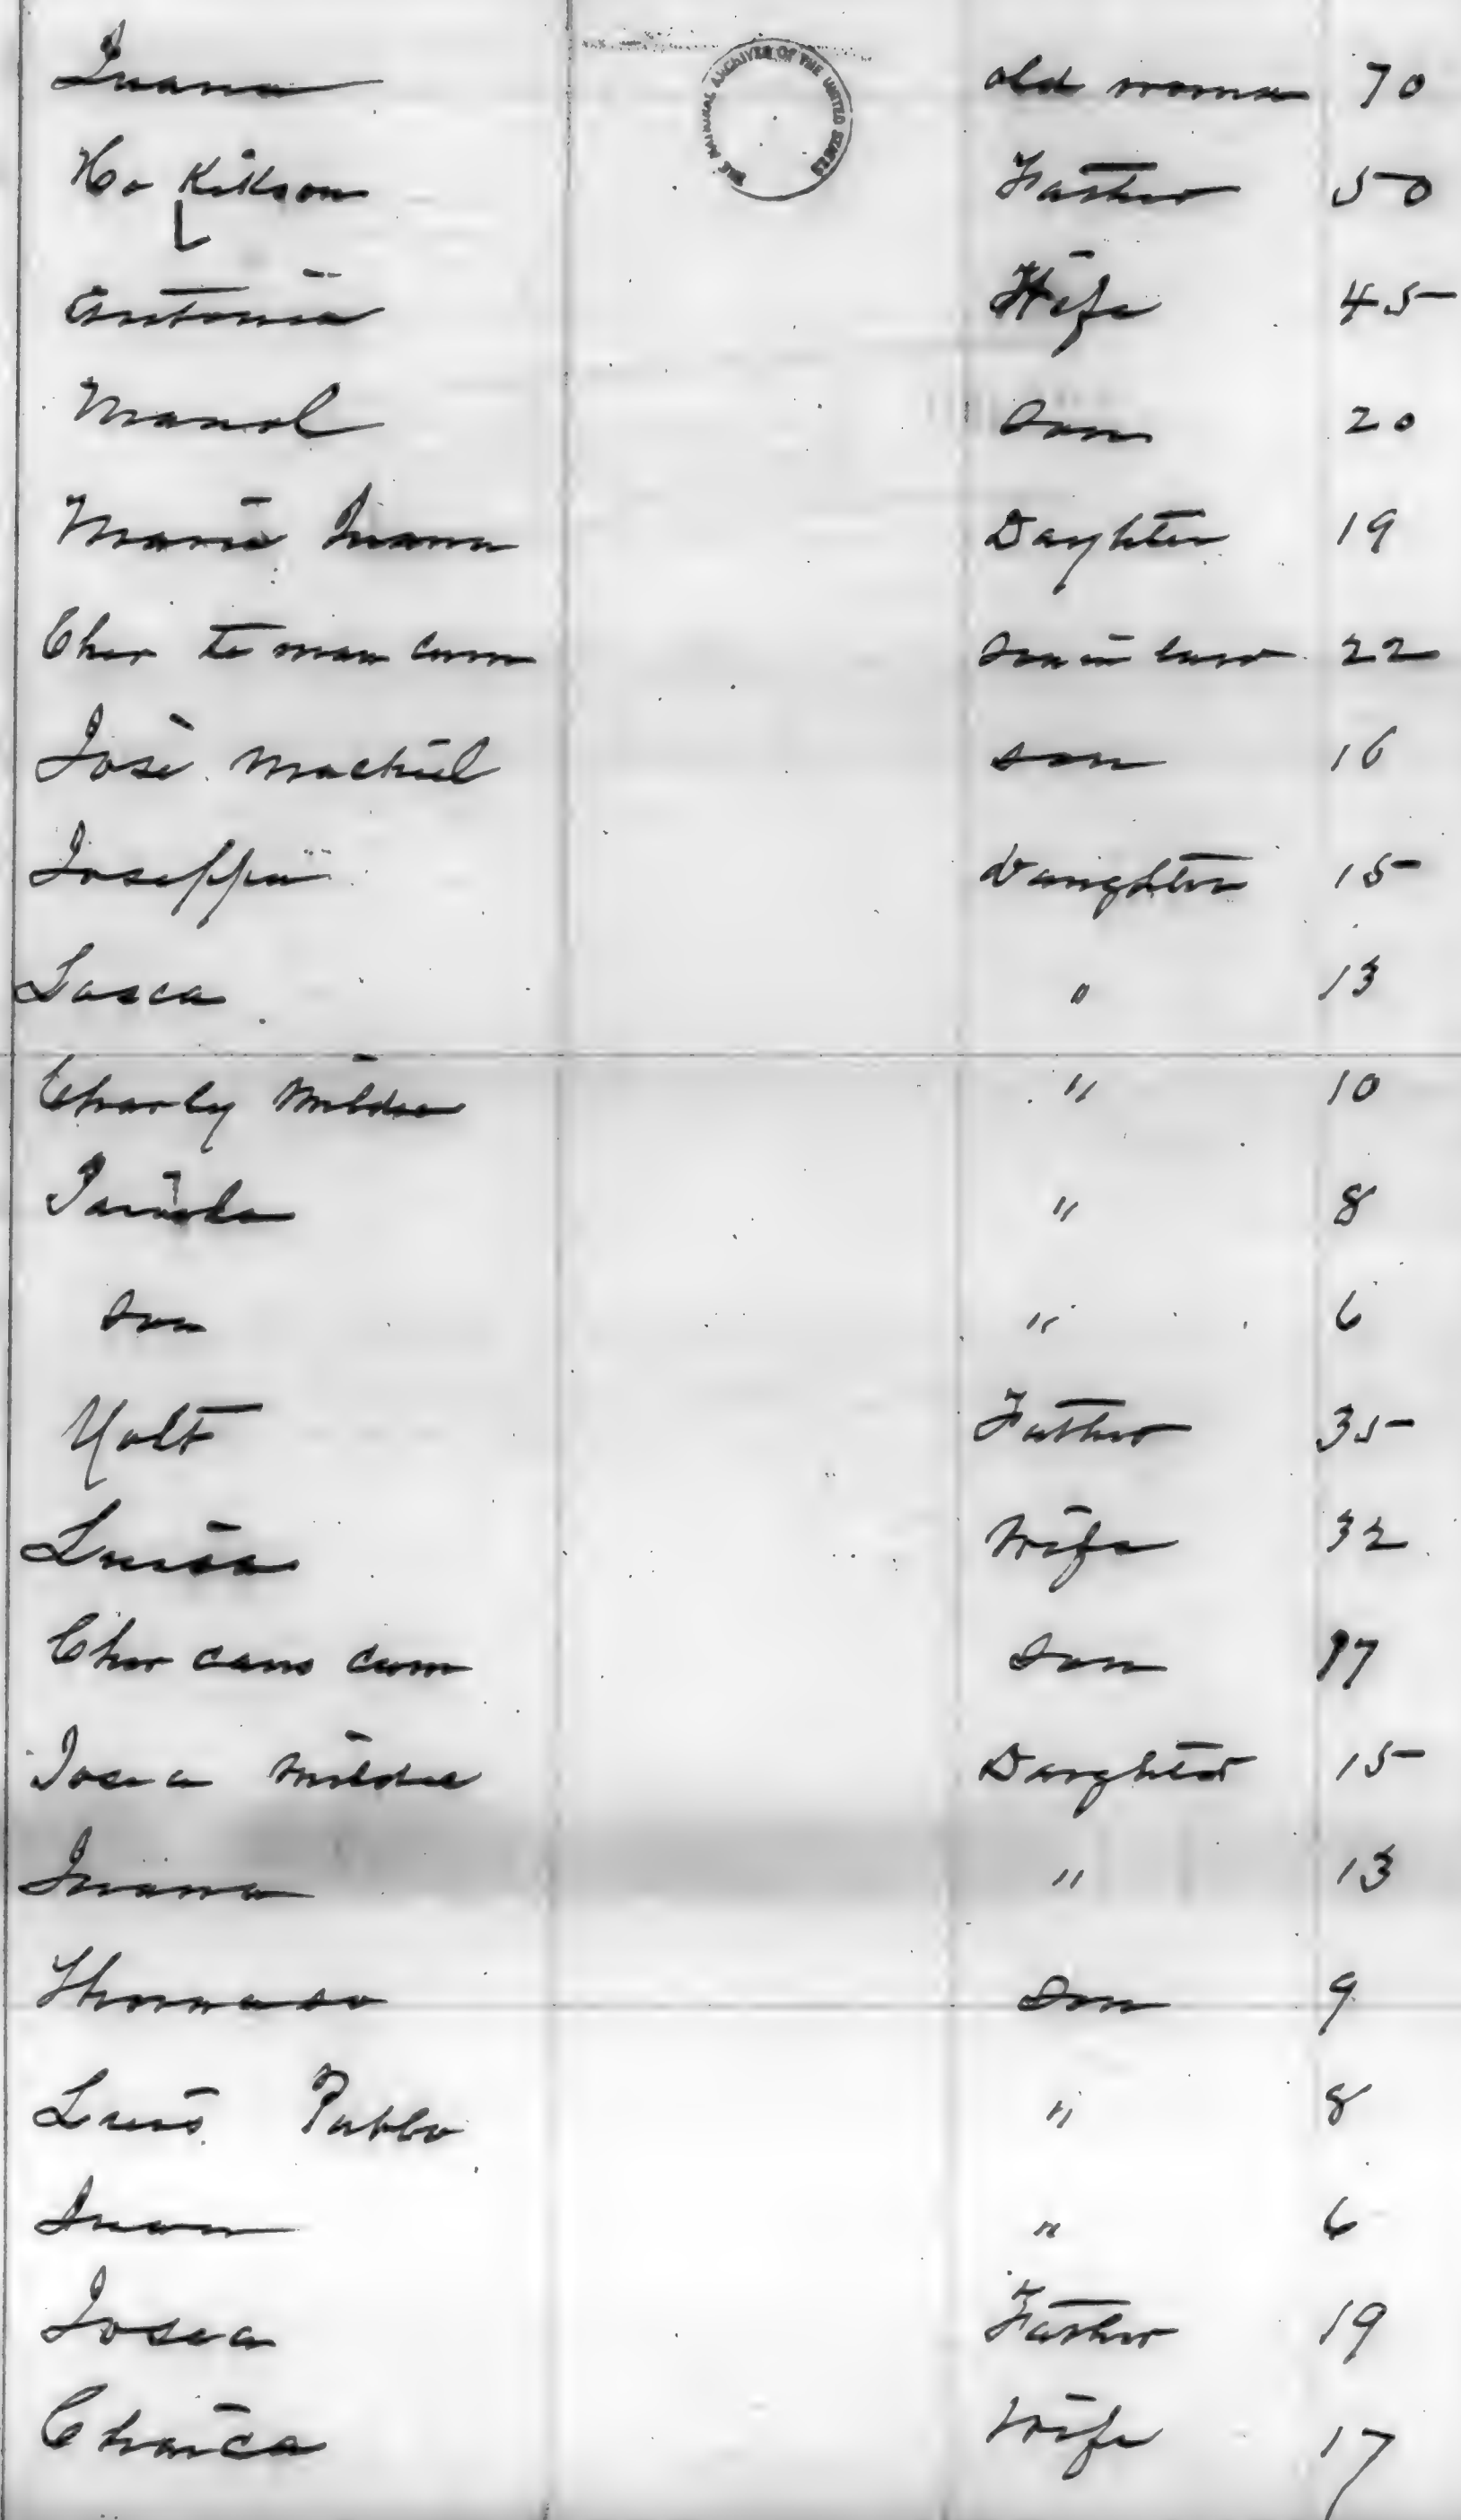 Juana old woman 70
THE NATIONAL ARCHIVES OF THE UNITED STATES
Ho Kikson Father 50
Antonia Wife 45
Manol Son 20
Maria Juana Dayhter 19
Cher te mau cum Son in law 22
José Machiel son 16
Joseppa Daughter 15
Lasca " 13
Charly Mildee " 10
" 8
Son " 6
Yolt Father 35
Luisa Wife 32
Cher cans cum Son 17
Josea Mildee Daughter 15
Juana " 13
Thomaso Son 9
Luis Pablo " 8
Juan " 6
Josea Father 19
Chaica Wife 17